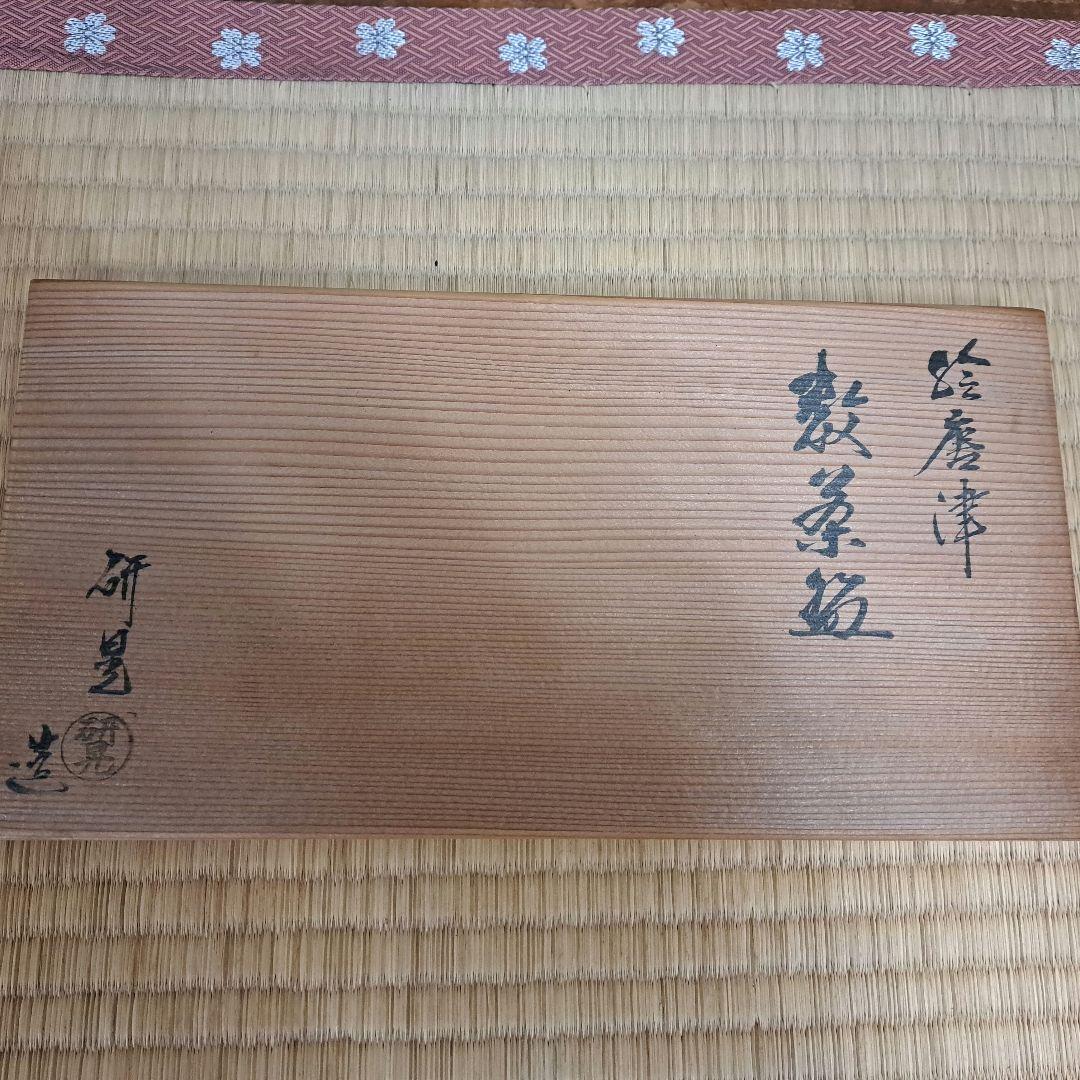 絵唐津
数茶碗
研晃
造
研晃